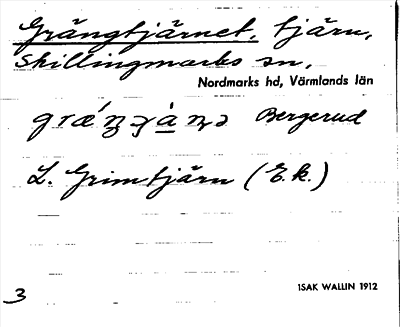 Grängtjärnet. tjärn,
Skillingmarks sn.
Nordmarks hd, Värmlands län
Bergerud
L. Grimtjärn (E.k.)
ISAK WALLIN 1912
3